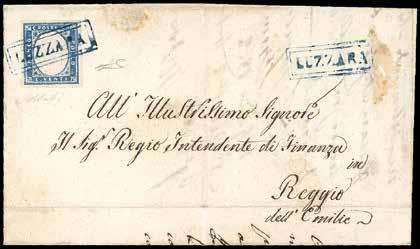 LUZZARA
LUZZARA
All' Illustrissimo Signore
Il Sig.r Regio Intendente di Finanza
in
Reggio
dell' Emilia